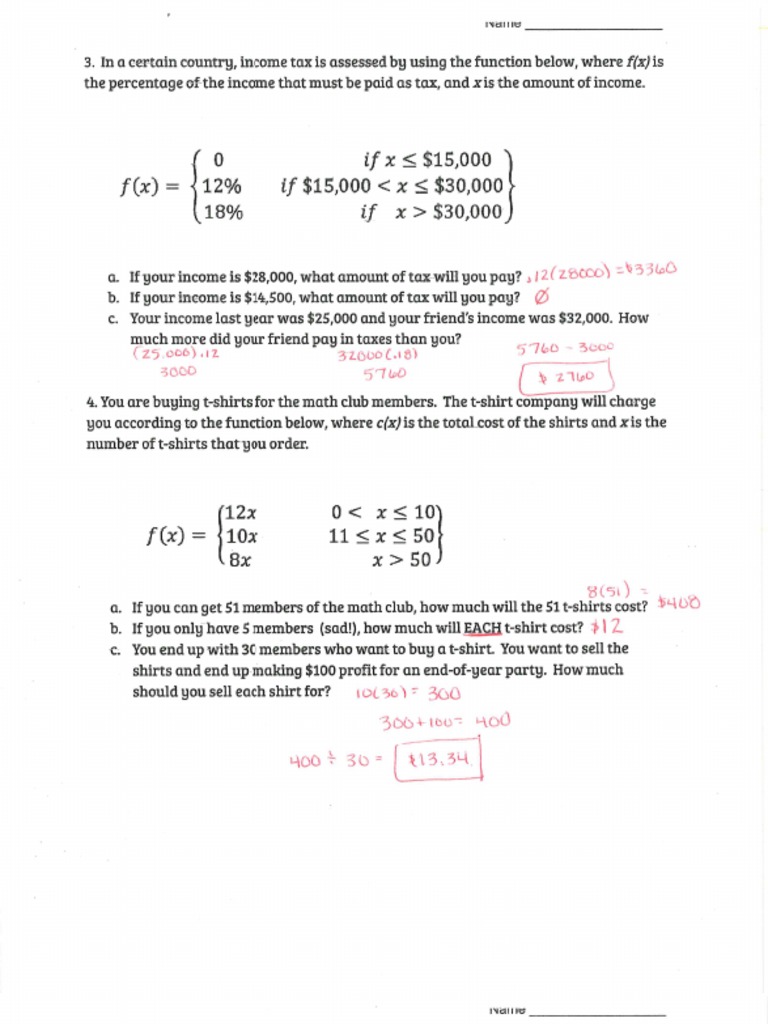 Name
3. In a certain country, income tax is assessed by using the function below, where f(x) is
the percentage of the income that must be paid as tax, and x is the amount of income.
f(x) = { 0 if x ≤ $15,000
12% if $15,000 < x ≤ $30,000
18% if x > $30,000 }
a. If your income is $28,000, what amount of tax will you pay? .12(28000) = $3360
b. If your income is $14,500, what amount of tax will you pay? Ø
c. Your income last year was $25,000 and your friend's income was $32,000. How
much more did your friend pay in taxes than you?
(25,000).12 32000(.18) 5760 - 3000
3000 5760 $ 2760
4. You are buying t-shirts for the math club members. The t-shirt company will charge
you according to the function below, where c(x) is the total cost of the shirts and x is the
number of t-shirts that you order.
f(x) = { 12x 0 < x ≤ 10
10x 11 ≤ x ≤ 50
8x x > 50 }
8(51) =
a. If you can get 51 members of the math club, how much will the 51 t-shirts cost? $408
b. If you only have 5 members (sad!), how much will EACH t-shirt cost? $12
c. You end up with 30 members who want to buy a t-shirt. You want to sell the
shirts and end up making $100 profit for an end-of-year party. How much
should you sell each shirt for? 10(30) = 300
300+100= 400
400 ÷ 30 = $13.34
Name